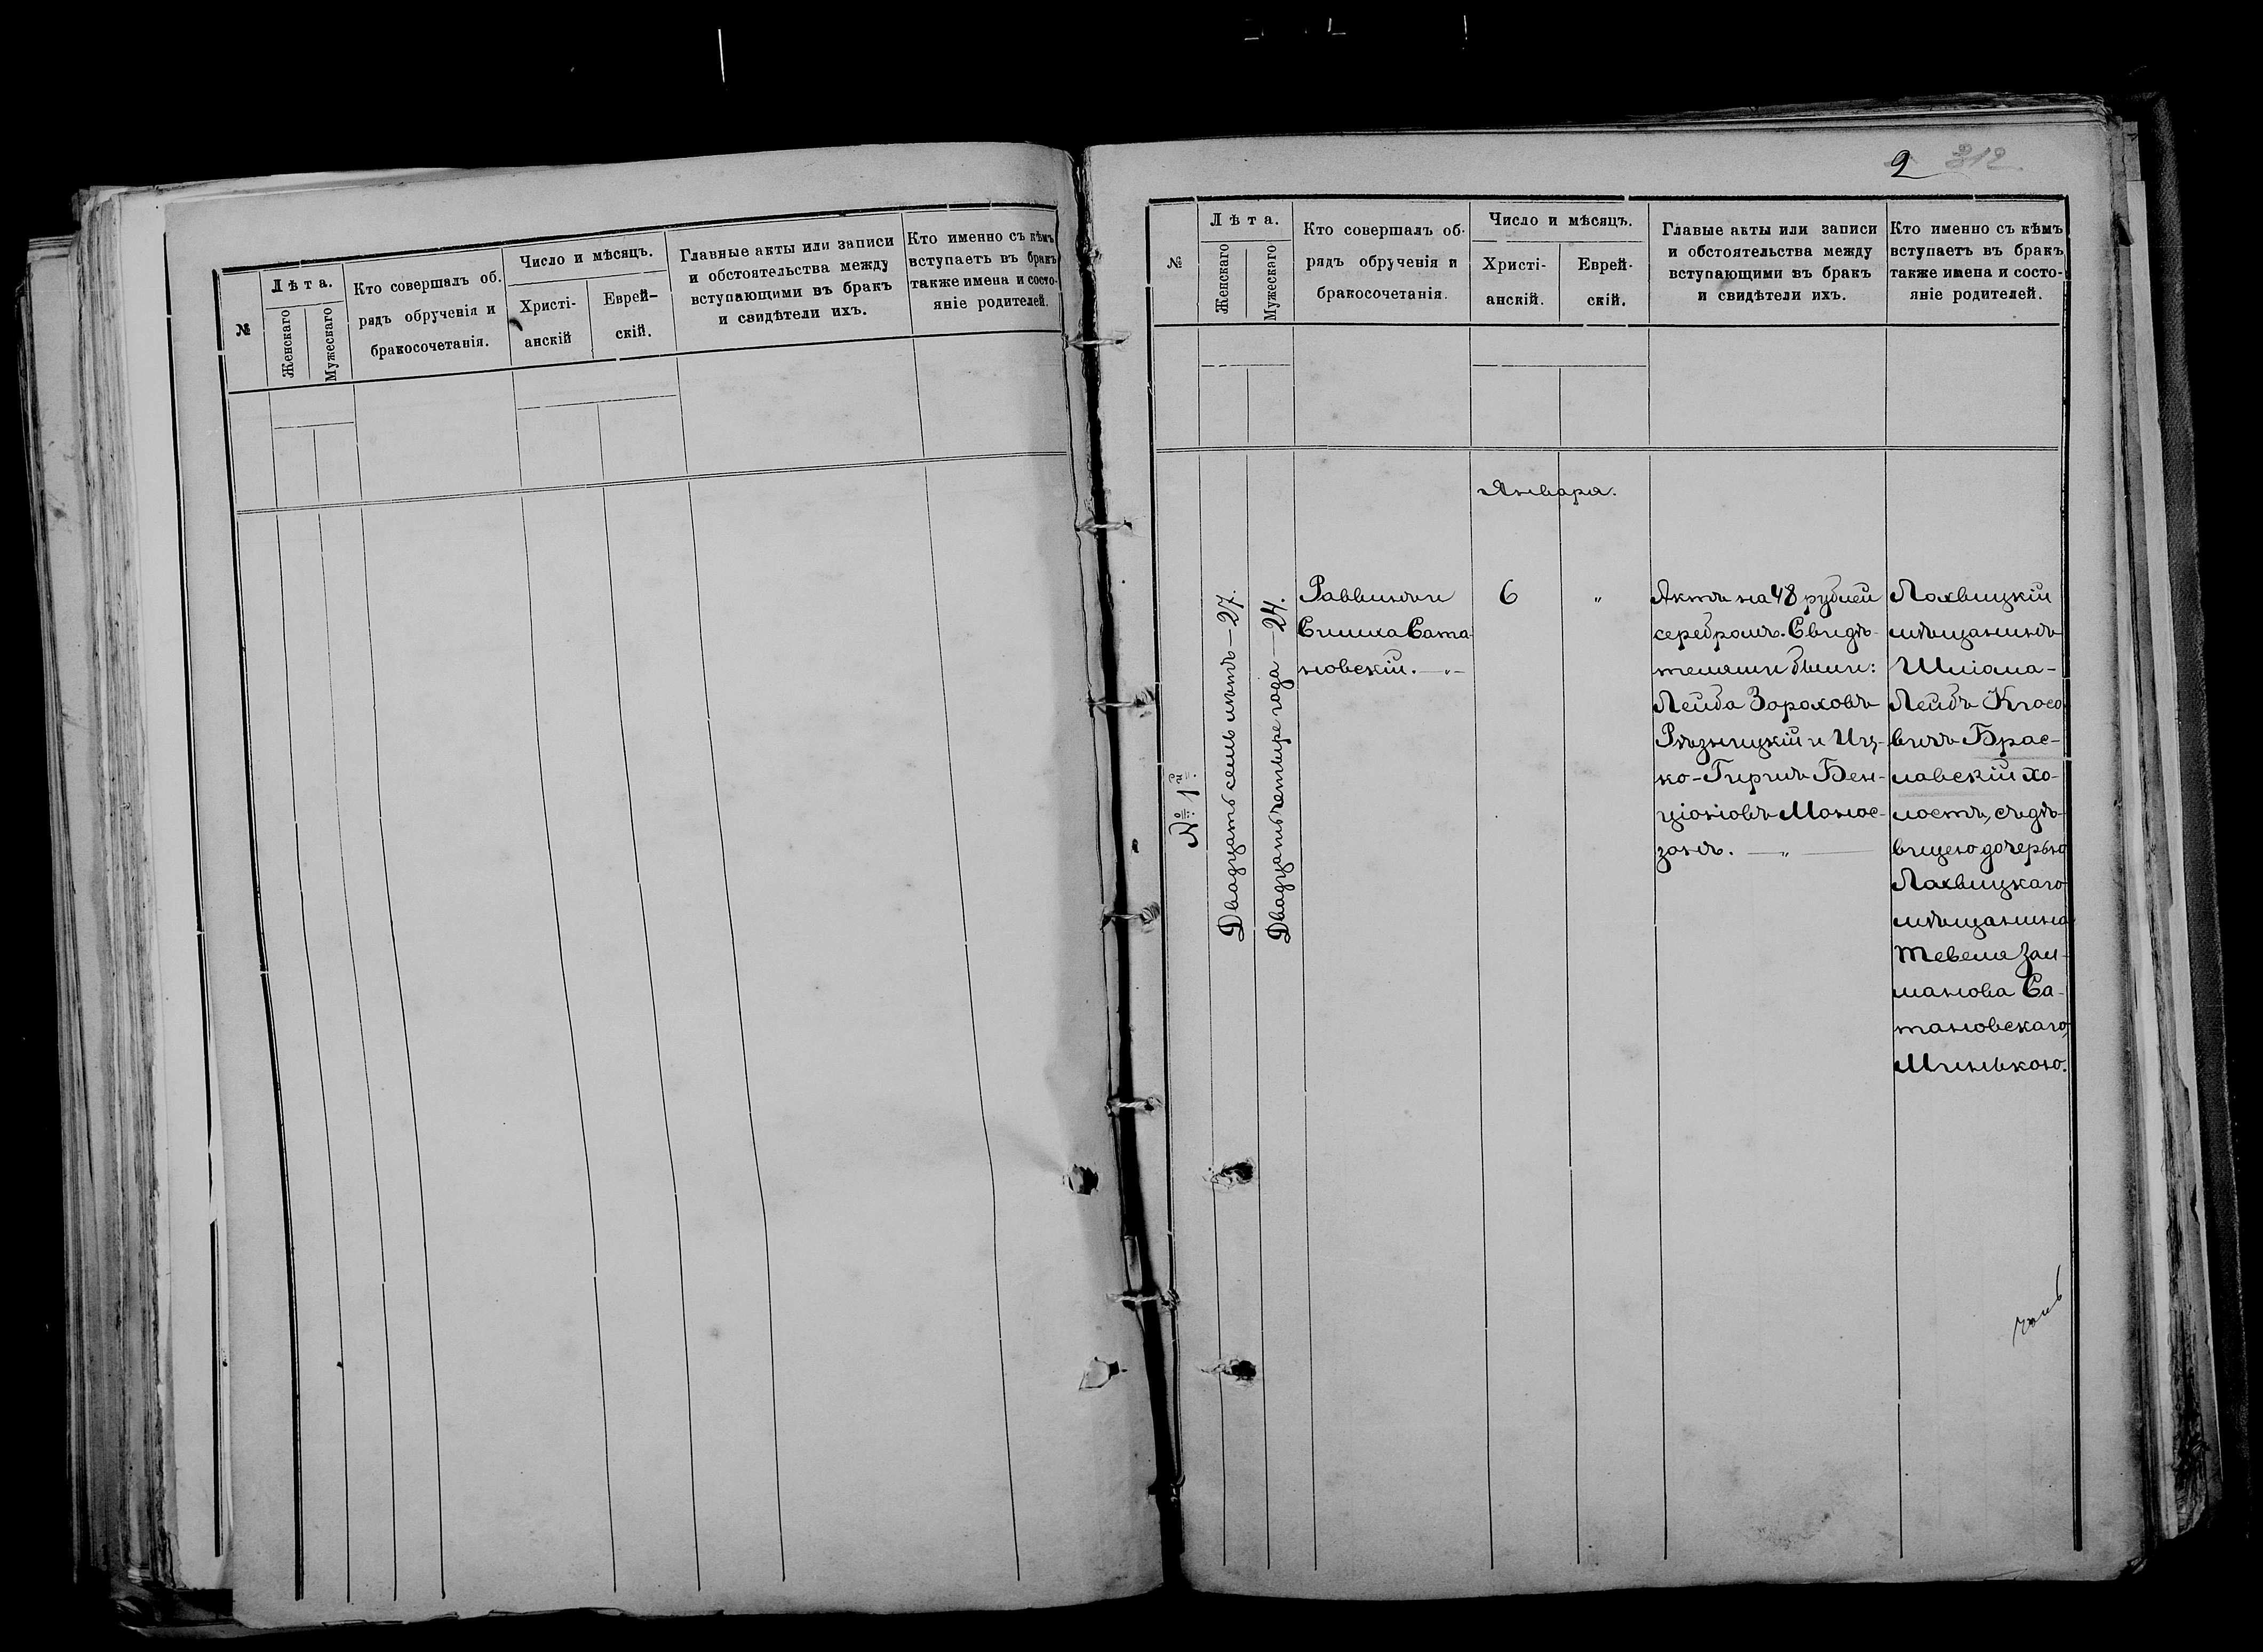 №
Лѣта.
Женскаго
Мужескаго
Кто совершалъ об.
рядъ обрученія и
бракосочетанія.
Число и мѣсяцъ.
Христі-
анскій
Еврей-
скій.
Главные акты или записи
и обстоятельства между
вступающими въ бракъ
и свидѣтели ихъ.
Кто именно съ кѣмъ
вступаетъ въ бракъ
также имена и состо-
яніе родителей.
2 312
№
Лѣта.
Женскаго
Мужескаго
Кто совершалъ об-
рядъ обрученія и
бракосочетанія.
Число и мѣсяцъ.
Христі-
анскій.
Еврей-
скій.
Главые акты или записи
и обстоятельства между
вступающими въ бракъ
и свидѣтели ихъ.
Кто именно съ кѣмъ
вступаетъ въ бракъ
также имена и состо-
яніе родителей.
Января.
№ 1й.
Двадцать семь лѣтъ — 27.
Двадцать четыре года — 24.
Раввинъ и
Симха Сата-
новскій. — „ —
6
„
Актъ на 48 рублей
серебромъ. Свидѣ-
телями были:
Лейба Зороховъ
Рѣзницкій и Иц-
ко-Гиршъ Бен-
ціоновъ Моног-
зонъ. — „ —
Лохвицкій
мѣщанинъ
Шліома-
Лейбъ
вичъ Брас-
лавскій хо-
лостъ, съ дѣ-
вицею дочерью
Лохвицкаго
мѣщанина
Тевеля Зал-
манова Са-
тановскаго,
Минькою.